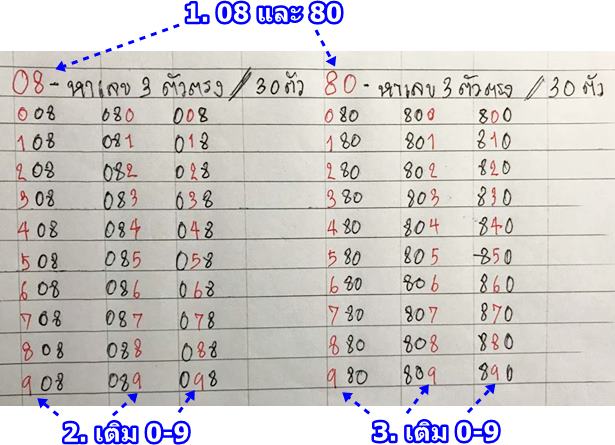 1. 08 และ 80
08 - หาเลข 3 ตัวตรง / 30 ตัว 80 - หาเลข 3 ตัวตรง // 30 ตัว
008 080 008 080 800 800
108 081 018 180 801 810
208 082 028 280 802 820
308 083 038 380 803 830
408 084 048 480 804 840
508 085 058 580 805 850
608 086 068 680 806 860
708 087 078 780 807 870
808 088 088 880 808 880
908 089 098 980 809 890
2. เติม 0-9 3. เติม 0-9